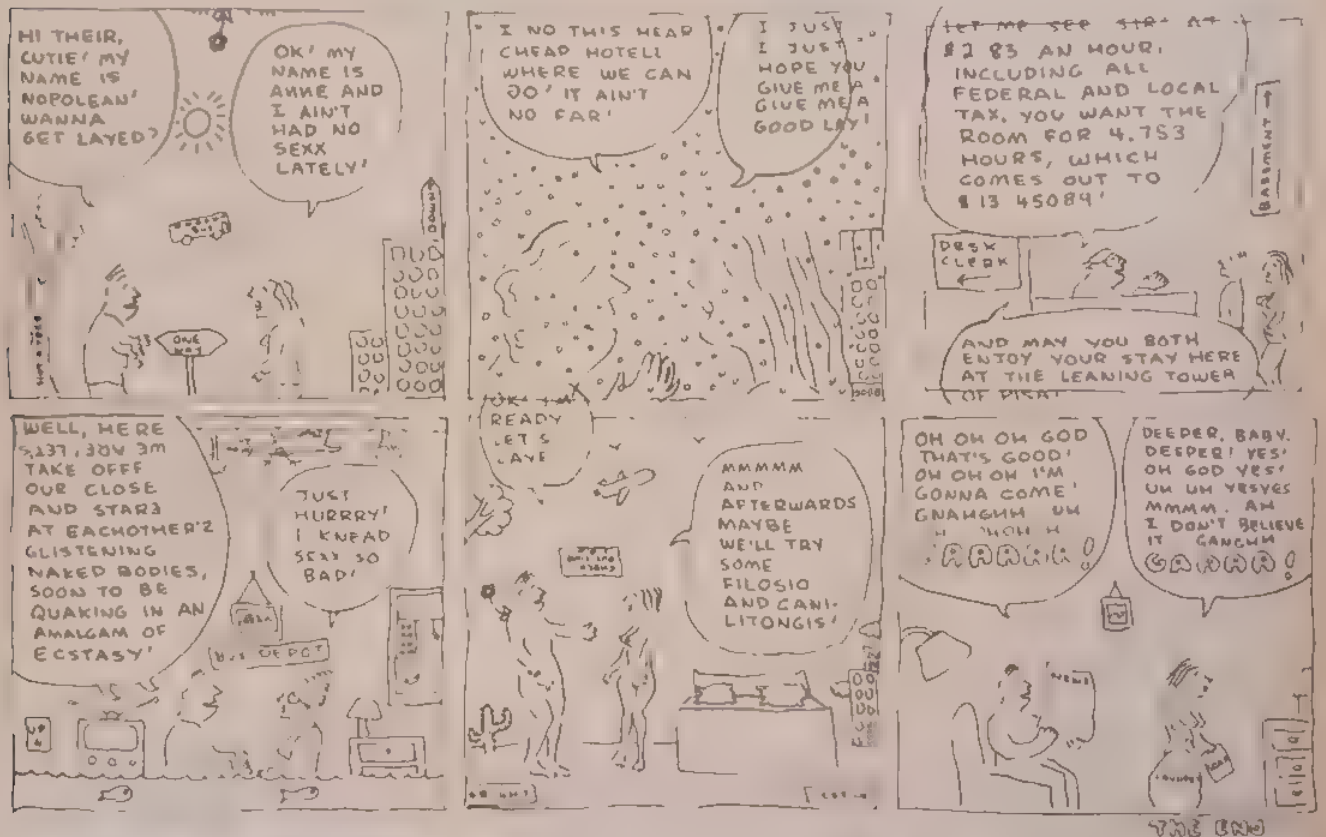 HI THEIR,
CUTIE! MY
NAME IS
NOPOLEAN!
WANNA
GET LAYED?
OK! MY
NAME IS
ANNE AND
I AIN'T
HAD NO
SEXX
LATELY!
DOWN
ONE
WAY
I NO THIS HEAR
CHEAP HOTELL
WHERE WE CAN
DO! IT AIN'T
NO FAR!
I JUST
I JUST
HOPE YOU
GIVE ME A
GIVE ME A
GOOD LAY!
LET ME SEE SIR. AT
$2 83 AN HOUR,
INCLUDING ALL
FEDERAL AND LOCAL
TAX, YOU WANT THE
ROOM FOR 4.753
HOURS, WHICH
COMES OUT TO
$13 45089!
BASEMENT
DESK
CLERK
AND MAY YOU BOTH
ENJOY YOUR STAY HERE
AT THE LEANING TOWER
OF PISA!
WELL, HERE
TAKE OFFF
OUR CLOSE
AND STAR3
AT EACHOTHER'Z
GLISTENING
NAKED BODIES,
SOON TO BE
QUAKING IN AN
AMALGAM OF
ECSTASY!
JUST
HURRRY!
I KNEAD
SEXX SO
BAD!
BUS DEPOT
UP
READY
LET'S
LAYE
MMMMM
AND
AFTERWARDS
MAYBE
WE'LL TRY
SOME
FILOSIO
AND CANI-
LITONGIS!
OH OH OH GOD
THAT'S GOOD!
OH OH OH I'M
GONNA COME!
GNAHGHH UH
DEEPER, BABY.
DEEPER! YES!
OH GOD YES!
UH UH YESYES
MMMM. AH
I DON'T BELIEVE
IT GANGHH
GAAAA!
NEWS
THE END